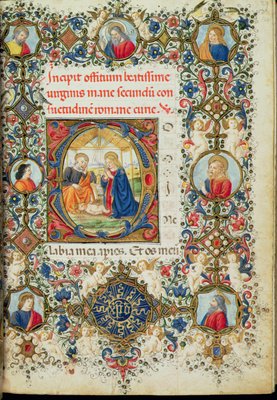 Incipit offitium beatissime
uirginis marie secundū con
suetudinē romane curie.
D
ne
labia mea apies. Et os meū